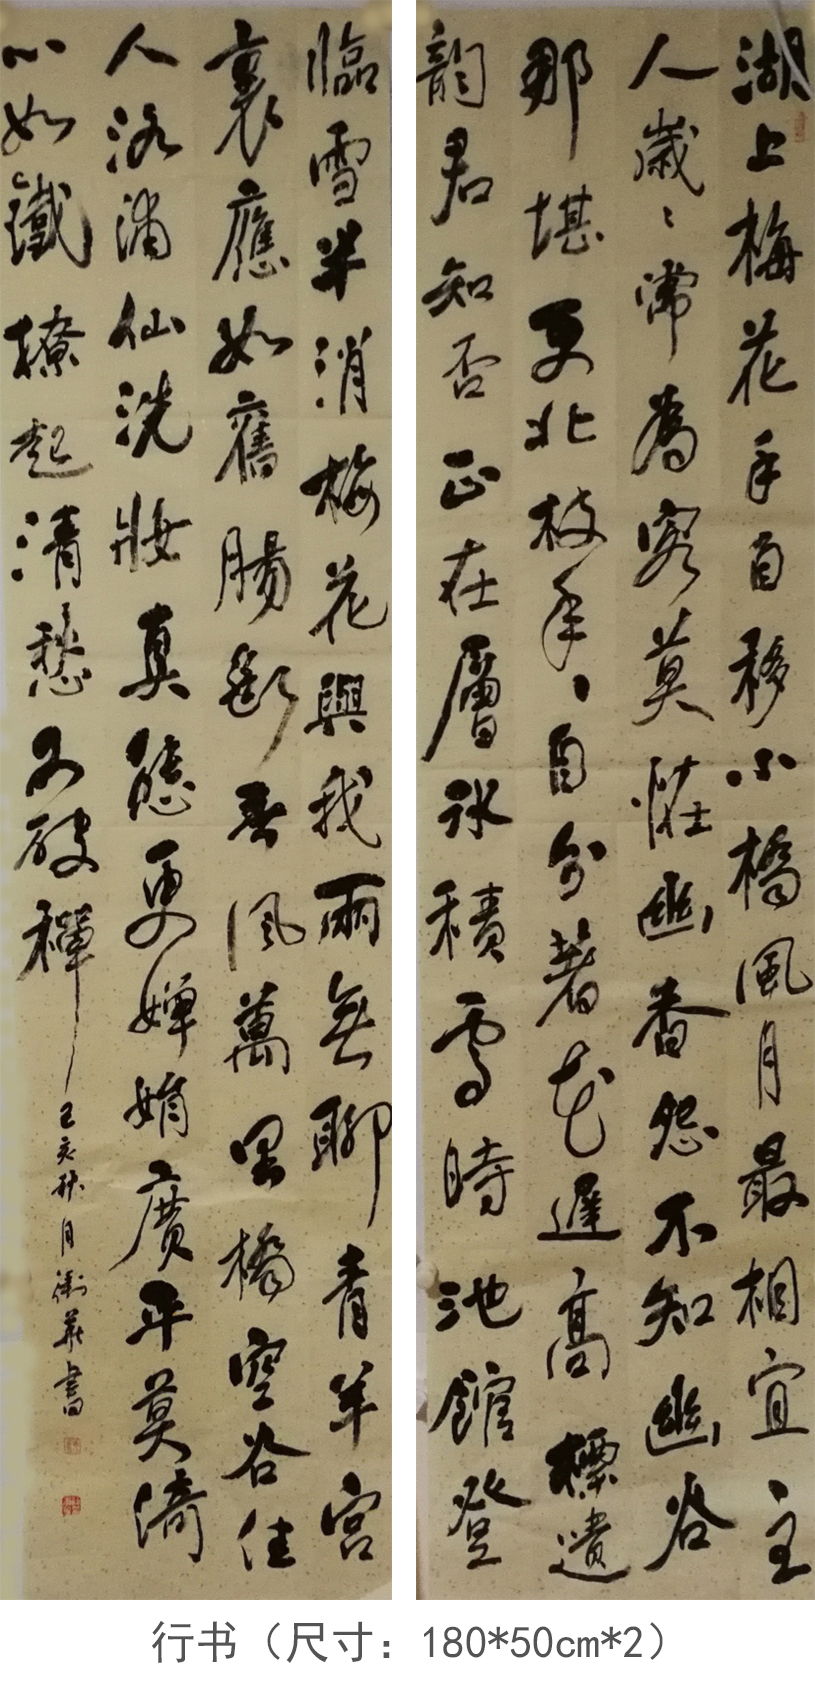 湖上梅花手自移小橋風月最相宜主
人歲〻常為客莫怪幽香怨不知幽谷
那堪更北枝年〻自分著花遲高標遺
韵君知否正在層冰積雪時池館登
臨雪半消梅花與我兩無聊青羊宮
裏應如舊腸斷春風萬里橋空谷佳
人洛浦仙洗妝真態更嬋娟廣平莫倚
心如鐵撩起清愁又破禪 己亥秋月衛華書
行书（尺寸：180*50cm*2）